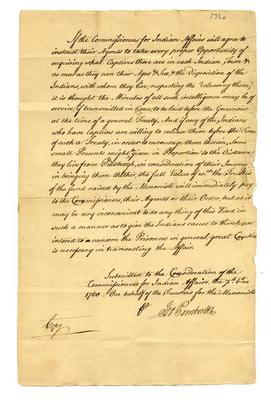 1760
If the Commissioners for Indian Affairs will agree to
instruct their Agents to take every proper Opportunity of
enquiring what Captives there are in each Indian Town, &
as near as they can their Ages & Sex, & the Disposition of the
Indians, with whom they live, respecting the Releasing them,
it is thought the Minutes of all such intelligence may be of
service, if transmitted in time, to be laid before the Governour
at the time of a general Treaty, And if any of the Indians
who have Captives are willing to release them before the Time
of such a Treaty, in order to encourage them therein, some
small Presents might given in Proportion to the Distance
they live from Pitsburgh, in consideration of their
in bringing them thither, the full Value of wch. the Trustees
of the fund raised by the Menonists will immediately pay
to the Commissioners, their Agents or their Order, but as it
may be very inconvenient to do any thing of this Kind in
such a manner as to give the Indians cause to think we
intend to ransom the Prisoners in general, great Caution
is necessary in transacting the Affair.
Submitted to the Consideration of the
Commissioners for Indian Affairs, the
1760. On behalf of the Trustees for the Menonists
Copy